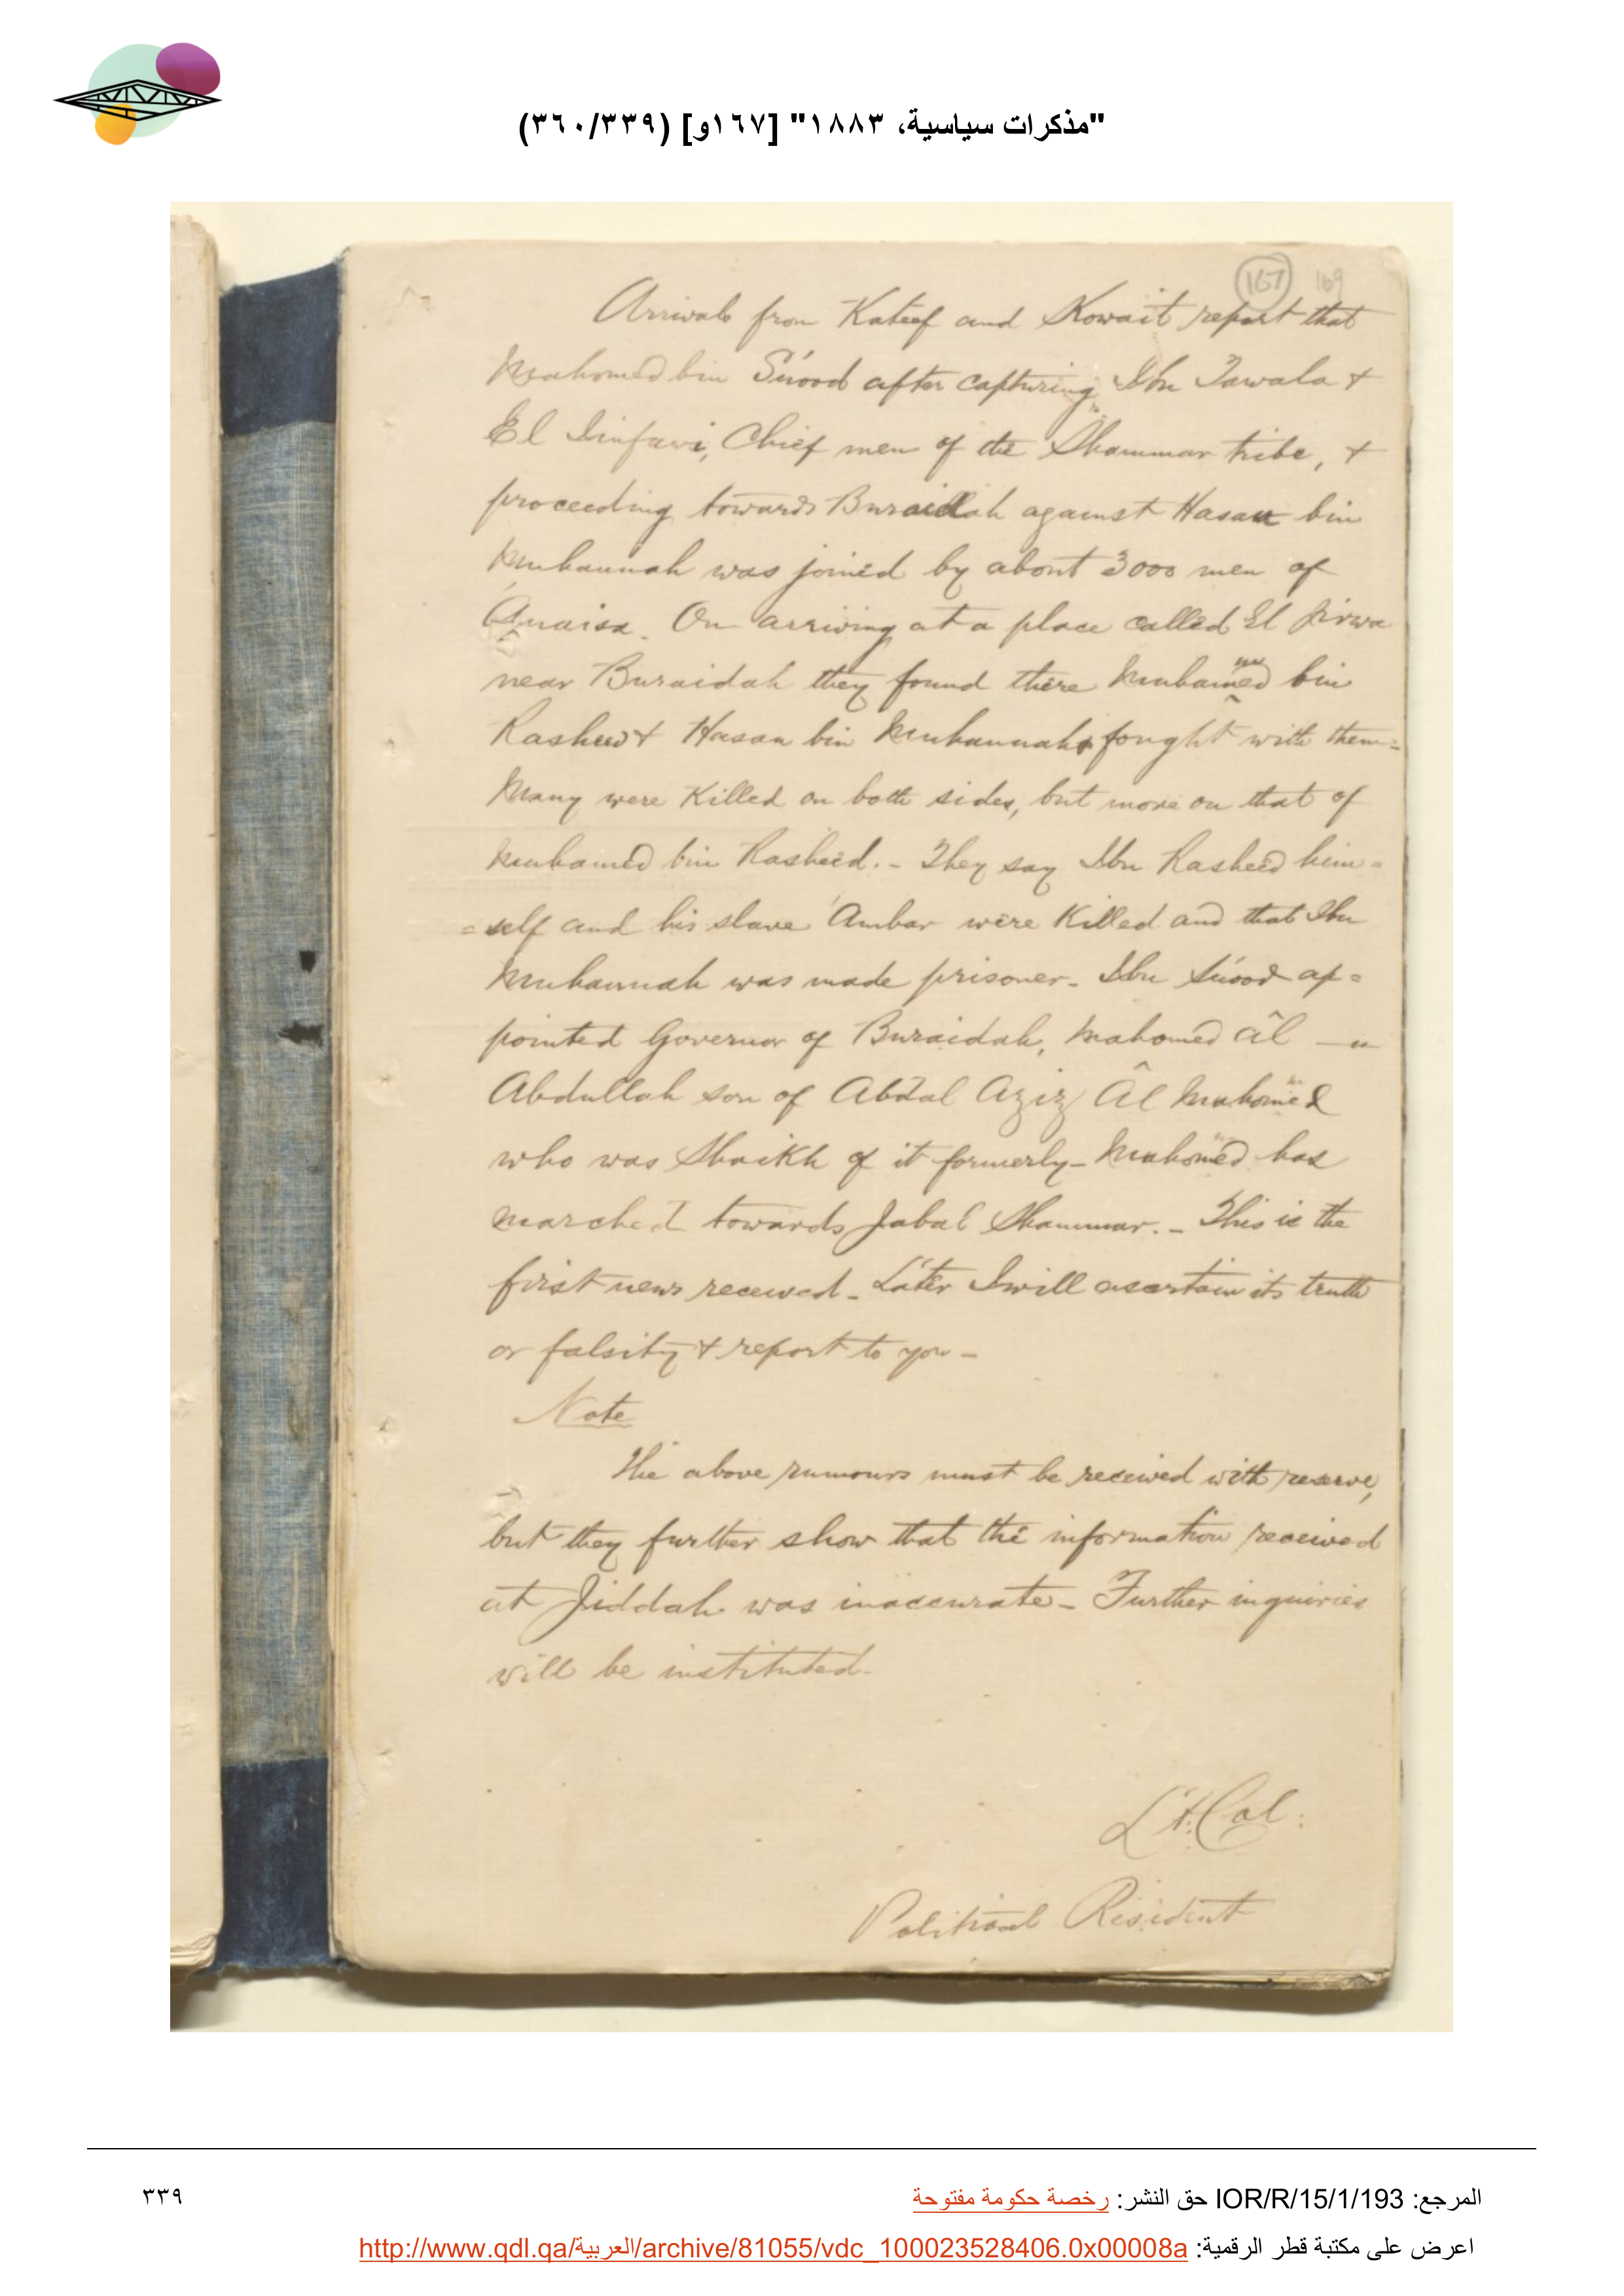 "مذكرات سياسية، ١٨٨٣" [١٦٧و] (٣٦٠/٣٣٩)
167 169
Arrivals from Kateef and Kowait report that
Mahomed bin Súood after capturing Ibn Tawala +
El Chief men of the Shammar tribe, +
proceeding towards Buraidah against Hasan bin
Muhannah was joined by about 3000 men of
Anaiza. On arriving at a place called El Jirwa
near Buraidah they found there Muhammed bin
Rasheed + Hasan bin Muhannah + fought with them=
Many were killed on both sides, but more on that of
Muhamed bin Rasheed. - They say Ibn Rasheed him=
=self and his slave 'Ambar were killed and that Ibn
Muhannah was made prisoner - Ibn Súood ap=
pointed Governor of Buraidah, Mahomed âl
Abdullah son of Abdal Aziz Âl Mahomed
who was Shaikh of it formerly - Mahomed has
marched towards Jabal Shammar. - This is the
first news received - Later I will ascertain its truth
or falsity + report to you -
Note
The above rumours must be received with reserve,
but they further show that the information received
at Jiddah was inaccurate - Further inquiries
will be instituted.
Lt. Col:
Political Resident
المرجع: IOR/R/15/1/193 حق النشر: رخصة حكومة مفتوحة
٣٣٩
اعرض على مكتبة قطر الرقمية: http://www.qdl.qa/العربية/archive/81055/vdc_100023528406.0x00008a